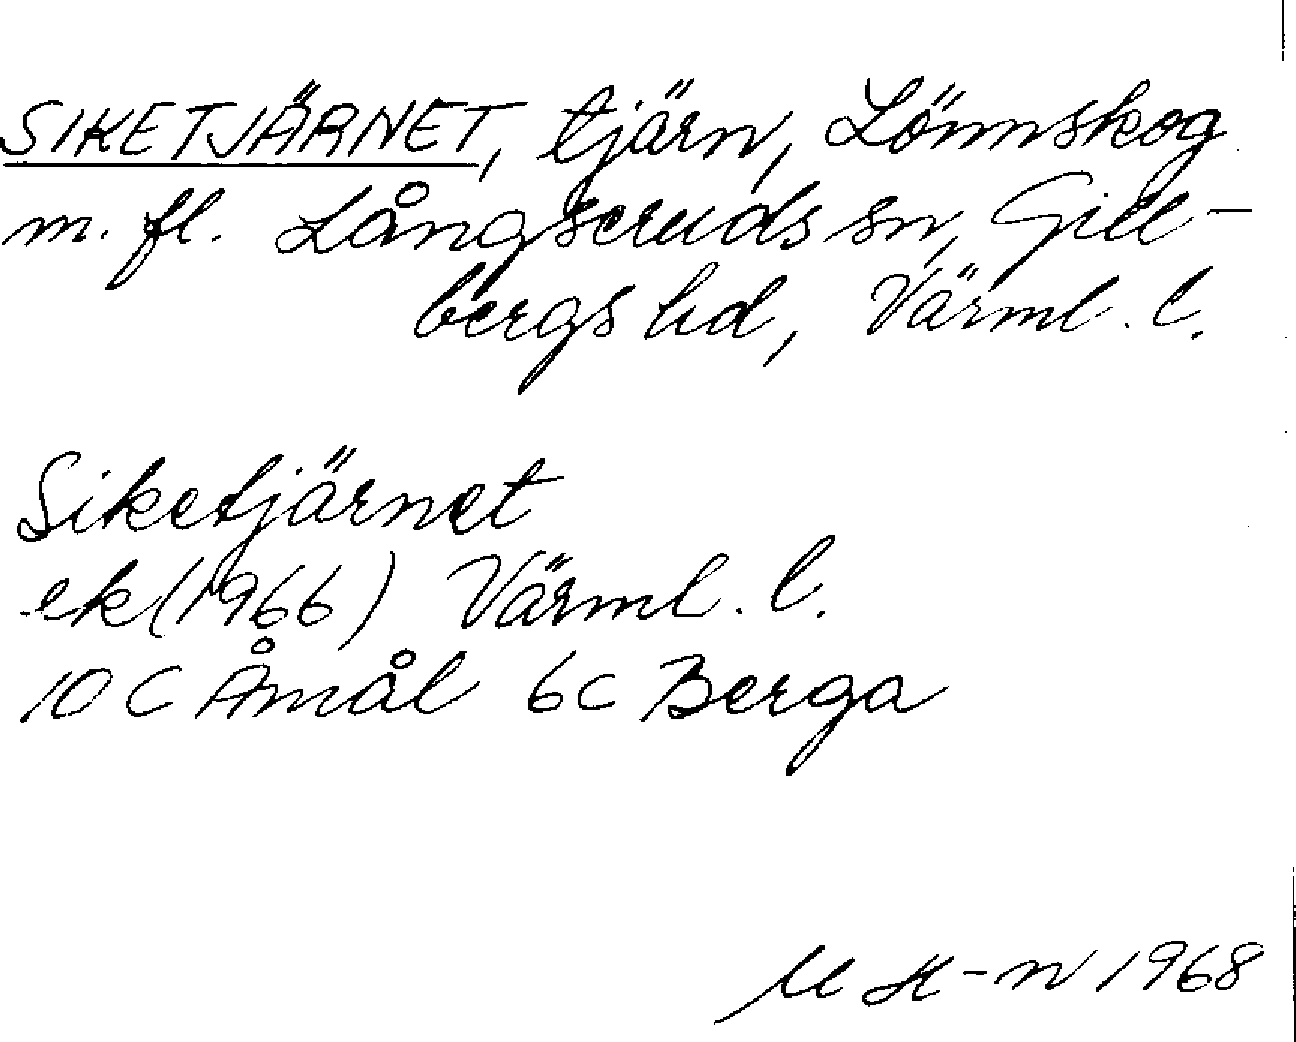 SIKETJÄRNET, tjärn, Lönnskog
m. fl. Långseruds sn, Gill-
bergs hd, Värml. l.
Siketjärnet
ek (1966) Värml. l.
10 C Åmål 6c Berga
M H-n 1968